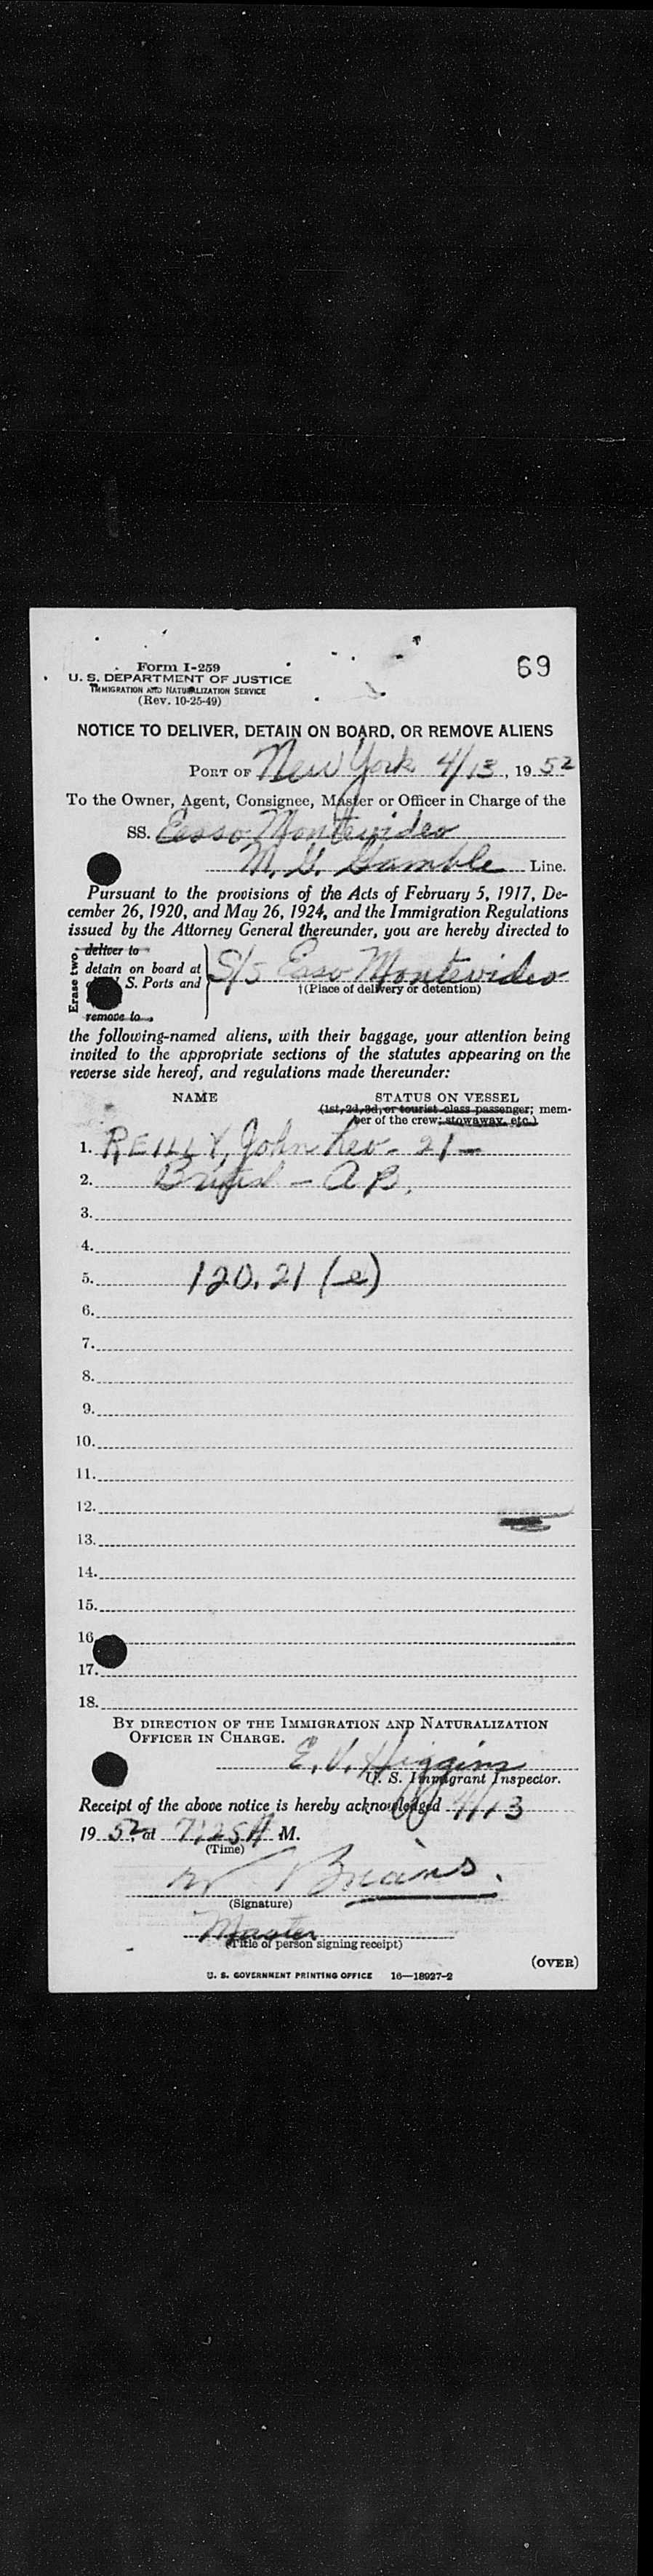 Form I-259
69
U. S. DEPARTMENT OF JUSTICE
IMMIGRATION AND NATURALIZATION SERVICE
(Rev. 10-25-49)
NOTICE TO DELIVER, DETAIN ON BOARD, OR REMOVE ALIENS
PORT OF New York 4/13, 19 52
To the Owner, Agent, Consignee, Master or Officer in Charge of the
SS. Esso Montevideo
M. G. Gamble Line.
Pursuant to the provisions of the Acts of February 5, 1917, De-
cember 26, 1920, and May 26, 1924, and the Immigration Regulations
issued by the Attorney General thereunder, you are hereby directed to
Erase two.
deliver to
detain on board at
S. Ports and
remove to
S/S Esso Montevideo
†(Place of delivery or detention)
the following-named aliens, with their baggage, your attention being
invited to the appropriate sections of the statutes appearing on the
reverse side hereof, and regulations made thereunder:
NAME STATUS ON VESSEL
(1st, 2d, 3d, or tourist class passenger; mem-
ber of the crew; stowaway, etc.)
1. REILLY, John Leo - 21 -
2. British - A B.
3.
4.
5. 120.21 (e)
6.
7.
8.
9.
10.
11.
12.
13.
14.
15.
16.
17.
18.
BY DIRECTION OF THE IMMIGRATION AND NATURALIZATION
OFFICER IN CHARGE.
E. V. Higgins
U. S. Immigrant Inspector.
Receipt of the above notice is hereby acknowledged 4/13
19 52, at 7:25 A M.
(Time)
(Signature)
Master
(Title of person signing receipt)
(OVER)
U. S. GOVERNMENT PRINTING OFFICE 16—18927-2